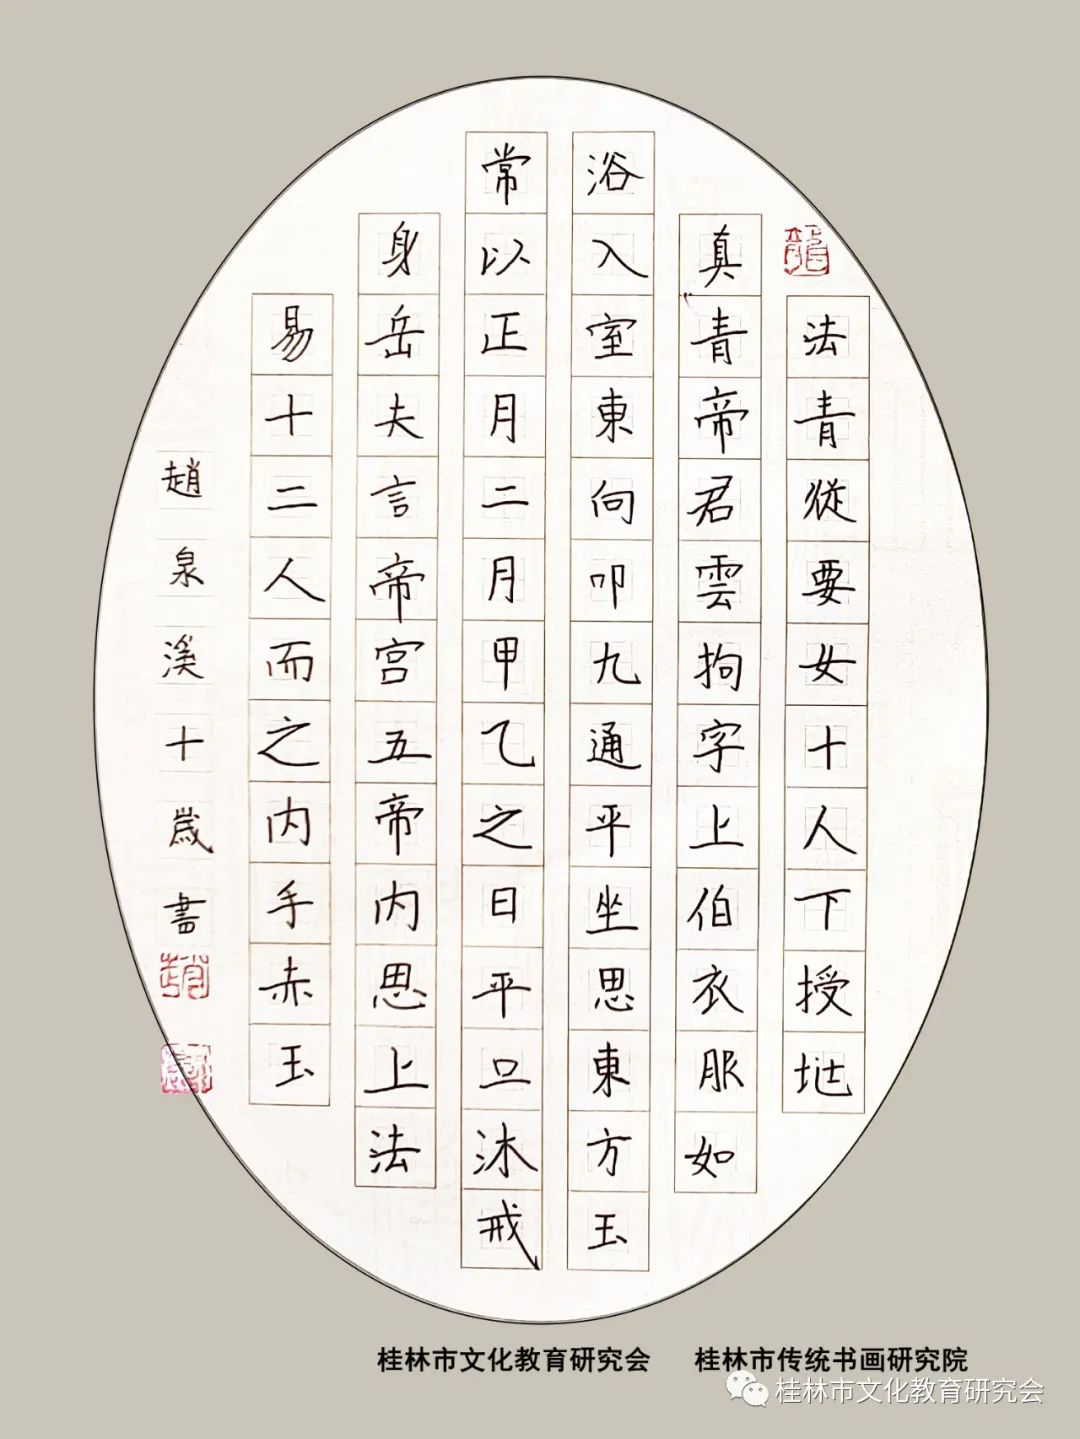 法青從要女十人下授地
真青帝君雲拘字上伯衣服如
浴入室東向叩九通平坐思東方玉
常以正月二月甲乙之日平旦沐戒
身岳夫言帝宮五帝內思上法
易十二人而之內手赤玉
趙泉溪十歲書
桂林市文化教育研究会 桂林市传统书画研究院
桂林市文化教育研究会